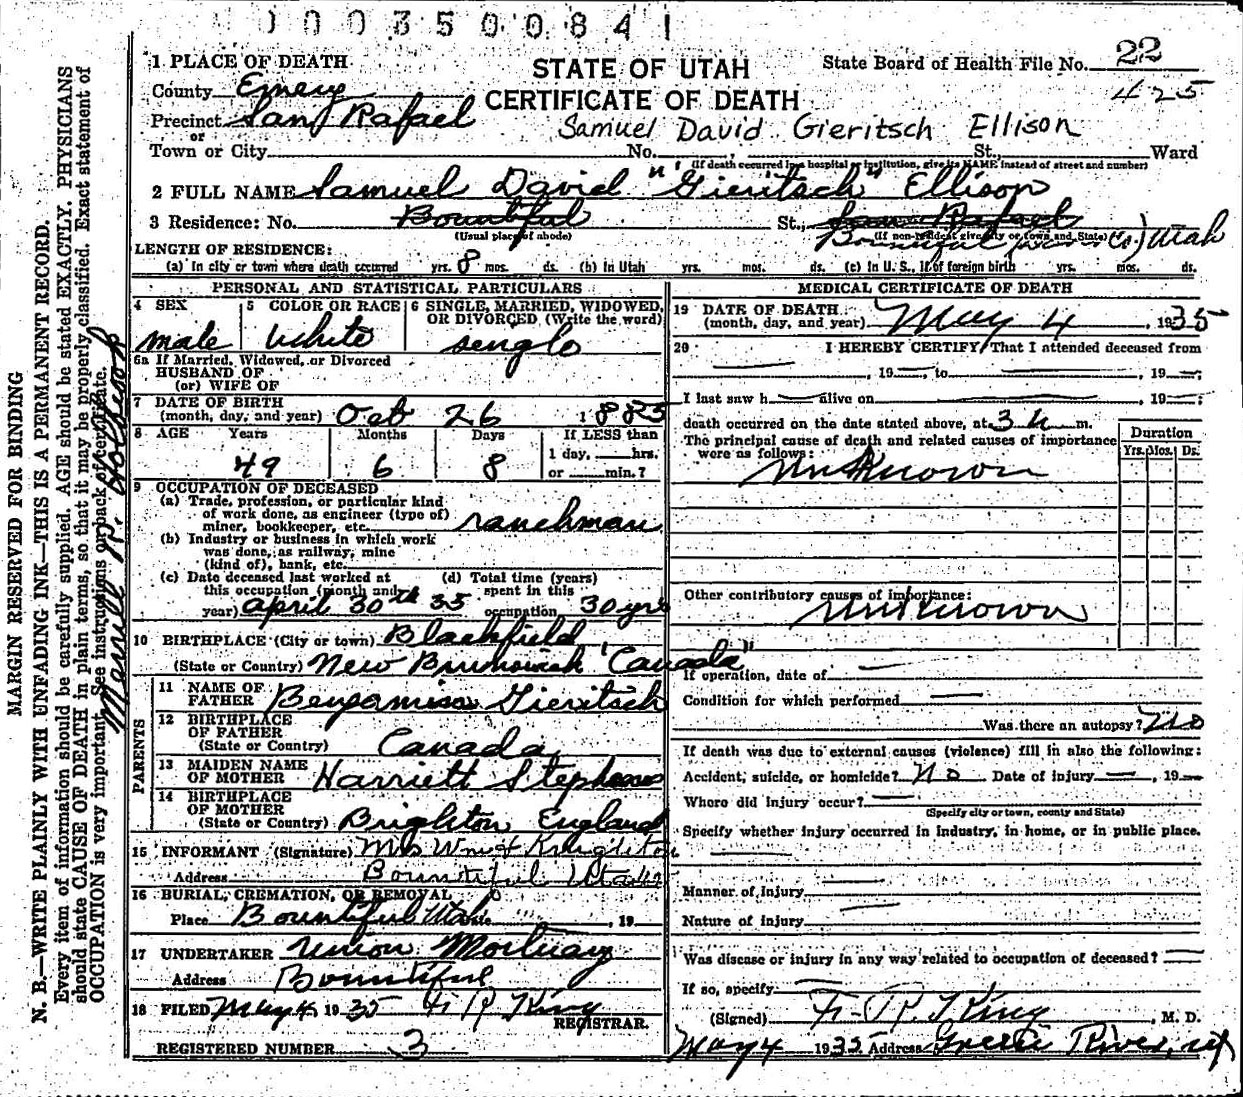 0003500841
1 PLACE OF DEATH
STATE OF UTAH
CERTIFICATE OF DEATH
State Board of Health File No. 22
425
County Emery
Precinct San Rafael
or
Samuel David Gieritsch Ellison
Town or City No. , St., Ward
(If death occurred in a hospital or institution, give its NAME instead of street and number)
2 FULL NAME Samuel David "Gieritsch" Ellison
3 Residence: No. Bountiful St., San Rafael
(Usual place of abode) (If non-resident give city or town and State)
Bountiful Co.) Utah
LENGTH OF RESIDENCE:
(a) In city or town where death occurred yrs. 8 mos. ds. (b) In Utah yrs. mos. ds. (c) In U. S., if of foreign birth yrs. mos. ds.
PERSONAL AND STATISTICAL PARTICULARS
4 SEX
male
5 COLOR OR RACE
white
6 SINGLE, MARRIED, WIDOWED, OR DIVORCED (Write the word)
single
6a If Married, Widowed, or Divorced
HUSBAND OF
(or) WIFE OF
7 DATE OF BIRTH
(month, day, and year) Oct 26 1885
8 AGE Years Months Days If LESS than
49 6 8 1 day, hrs.
or min.?
9 OCCUPATION OF DECEASED
(a) Trade, profession, or particular kind
of work done, as engineer (type of)
miner, bookkeeper, etc. ranchman
(b) Industry or business in which work
was done, as railway, mine
(kind of), bank, etc.
(c) Date deceased last worked at
this occupation (month and
year) april 30th 35
(d) Total time (years)
spent in this
occupation 30 yrs
10 BIRTHPLACE (City or town) Blackfield
(State or Country) New Brunswick "Canada"
PARENTS
11 NAME OF
FATHER Benjamin Gieritsch
12 BIRTHPLACE
OF FATHER
(State or Country) Canada
13 MAIDEN NAME
OF MOTHER Harriett Stephens
14 BIRTHPLACE
OF MOTHER
(State or Country) Brighton England
15 INFORMANT (Signature) Mrs Wm
Address Bountiful Utah
16 BURIAL, CREMATION, OR REMOVAL
Place Bountiful Utah , 19
17 UNDERTAKER Union Mortuary
Address Bountiful
18 FILED May 4 1935 F. R. King
REGISTRAR.
REGISTERED NUMBER 3
MEDICAL CERTIFICATE OF DEATH
19 DATE OF DEATH
(month, day, and year) May 4 , 1935
20 I HEREBY CERTIFY, That I attended deceased from
, 19 , to , 19 ;
I last saw h alive on , 19 ;
death occurred on the date stated above, at 3 m.
The principal cause of death and related causes of importance
were as follows:
Duration
Yrs. Mos. Ds.
unknown
Other contributory causes of importance:
unknown
If operation, date of
Condition for which performed
Was there an autopsy? no
If death was due to external causes (violence) fill in also the following:
Accident, suicide, or homicide? no Date of injury , 19
Where did injury occur?
(Specify city or town, county and State)
Specify whether injury occurred in industry, in home, or in public place.
Manner of injury
Nature of injury
Was disease or injury in any way related to occupation of deceased?
If so, specify
(Signed) F. R. King , M. D.
May 4 1935 Address Green River, ut
MARGIN RESERVED FOR BINDING
N. B.—WRITE PLAINLY WITH UNFADING INK—THIS IS A PERMANENT RECORD.
Every item of information should be carefully supplied. AGE should be stated EXACTLY. PHYSICIANS
should state CAUSE OF DEATH in plain terms, so that it may be properly classified. Exact statement of
OCCUPATION is very important. See instructions on back of certificate.
Merrill R.